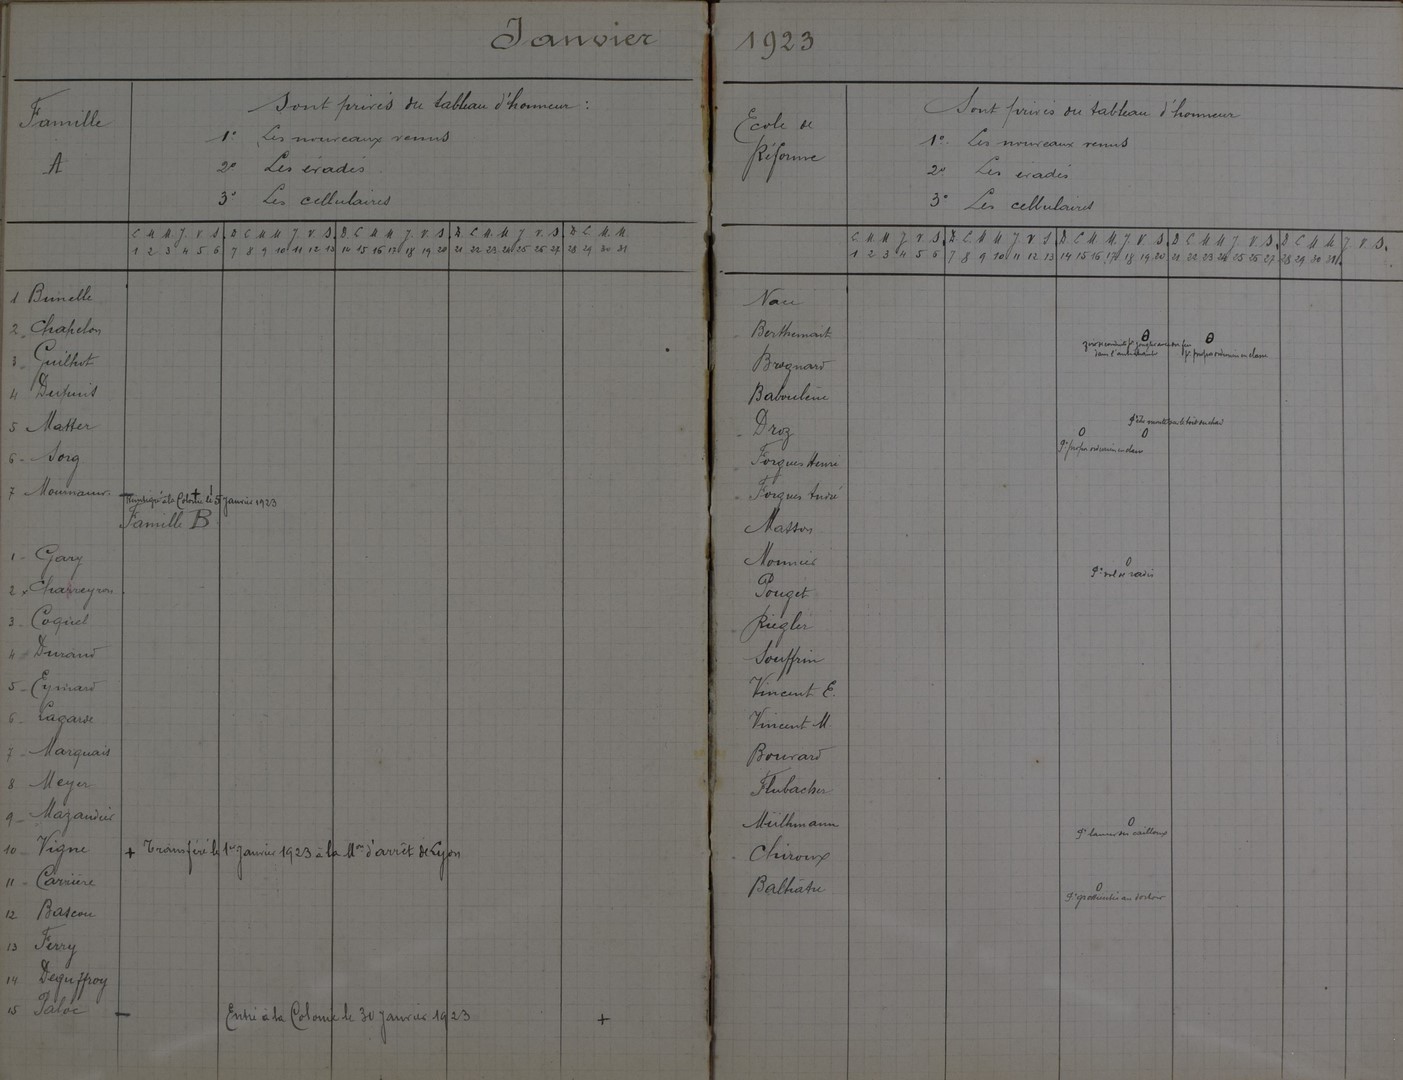 Janvier
Famille
A
Sont privés du tableau d'honneur :
1° Les nouveaux venus
2° Les évadés
3° Les cellulaires
L M M J V S D L M M J V S D L M M J V S D L M M J V S D L M M
1 2 3 4 5 6 7 8 9 10 11 12 13 14 15 16 17 18 19 20 21 22 23 24 25 26 27 28 29 30 31
1 Brunelle
2 Chapelon
3 Guilhot
4 Dupuis
5 Matter
6 Sorg
7 à la Colonie le 5 Janvier 1923
Famille B
1 Gary
2 Charreyron
3 Coquel
4 Durand
5 Eymard
6 Lagarde
7 Marquais
8 Meyer
9 Mazaudier
10 Vigne + Transféré le 1er Janvier 1923 à la Mon d'arrêt de Lyon
11 Carrière
12 Bascou
13 Ferry
14 Dequffroy
15 Paloc — Entré à la Colonie le 30 Janvier 1923 +
1923
Ecole de
Réforme
Sont privés du tableau d'honneur
1° Les nouveaux venus
2° Les évadés
3° Les cellulaires
L M M J V S D L M M J V S D L M M J V S D L M M J V S D L M M J V S
1 2 3 4 5 6 7 8 9 10 11 12 13 14 15 16 17 18 19 20 21 22 23 24 25 26 27 28 29 30 31
Nau
Berthemont
Brognard
Baboulène
Droz
Forques Henri
Forques André
Masson
Monnier
Pouget
Riegler
Souffrin
Vincent E.
Vincent M.
Bouvard
Flubacher
Mülhmann
Chiroux
Balhâtre